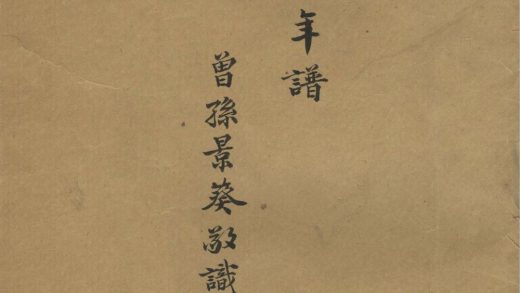 年譜
曾孫景葵敬識